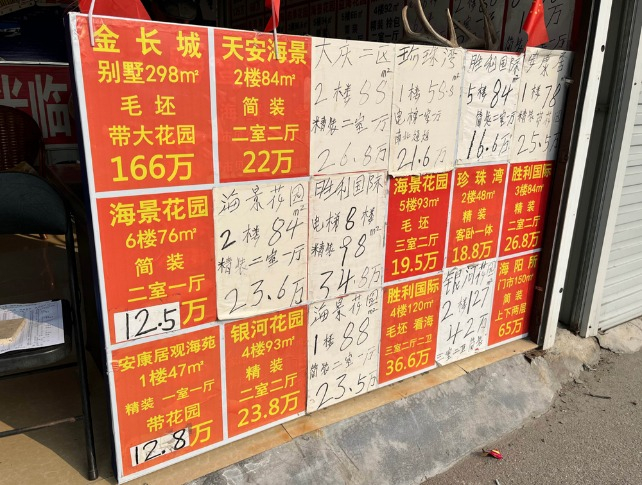 金长城
别墅298㎡
毛坯
带大花园
166万
天安海景
2楼84㎡
简装
二室二厅
22万
大庆二区
2楼88㎡
精装二室一厅
26.8万
珍珠湾
1楼58.8㎡
21.6万
胜利国际
5楼84㎡
简装二室一厅
16.6万
1楼78㎡
25.5万
海景花园
6楼76㎡
简装
二室一厅
12.5万
海景花园
2楼84㎡
精装二室一厅
23.6万
胜利国际
电梯8楼
精装98㎡
34.8万
海景花园
5楼93㎡
毛坯
三室二厅
19.5万
珍珠湾
2楼48㎡
精装
客卧一体
18.8万
胜利国际
3楼84㎡
精装
二室二厅
26.8万
安康居观海苑
1楼47㎡
精装 一室一厅
带花园
12.8万
银河花园
4楼93㎡
精装
二室二厅
23.8万
海景花园
1楼88㎡
简装二室一厅
23.5万
胜利国际
4楼120㎡
毛坯 看海
三室二厅二卫
36.6万
银河花园
2楼127㎡
42万
三室二厅简装
海阳所
门市150㎡
简装
上下两层
65万